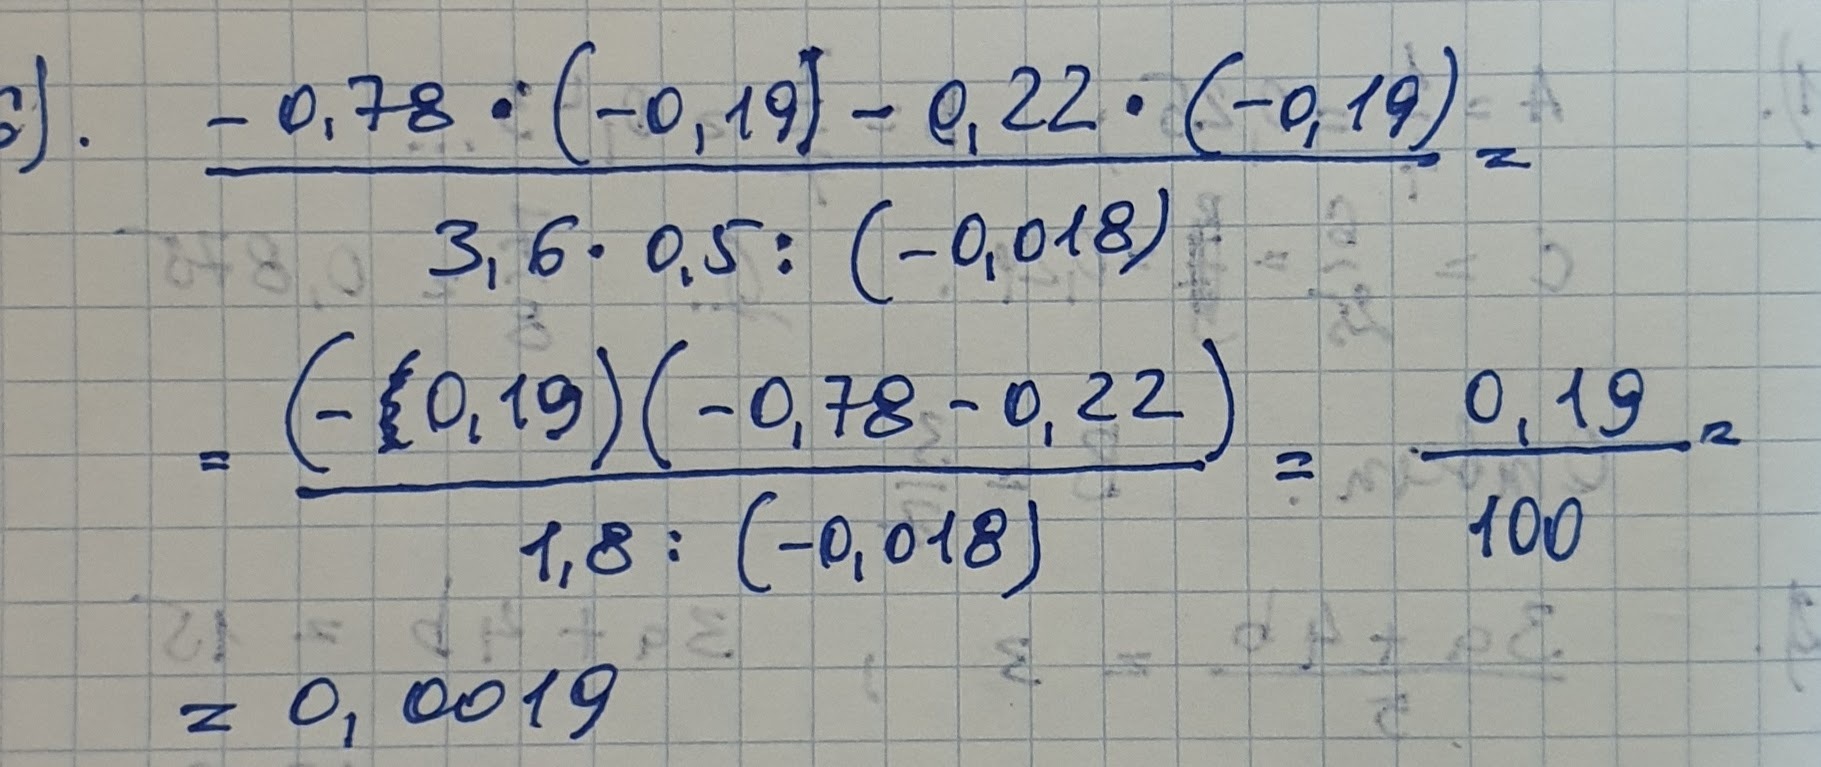 б). -0,78 · (-0,19) - 0,22 · (-0,19) =
3,6 · 0,5 : (-0,018)
= (-0,19)(-0,78 - 0,22) = 0,19 =
1,8 : (-0,018) 100
= 0,0019